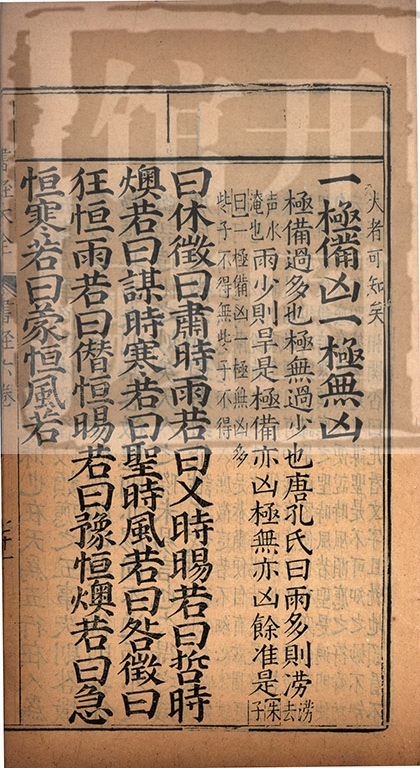 大者可知矣
一極備凶一極無凶
極備過多也極無過少也唐孔氏曰雨多則澇澇去
聲水淹也雨少則旱是極備亦凶極無亦凶餘准是朱子
曰一極備凶一極無凶多
些子不得無些子不得
曰休徵曰肅時雨若曰乂時暘若曰哲時
燠若曰謀時寒若曰聖時風若曰咎徵曰
狂恒雨若曰僭恒暘若曰豫恒燠若曰急
恒寒若曰蒙恒風若
書經大全
書經六卷